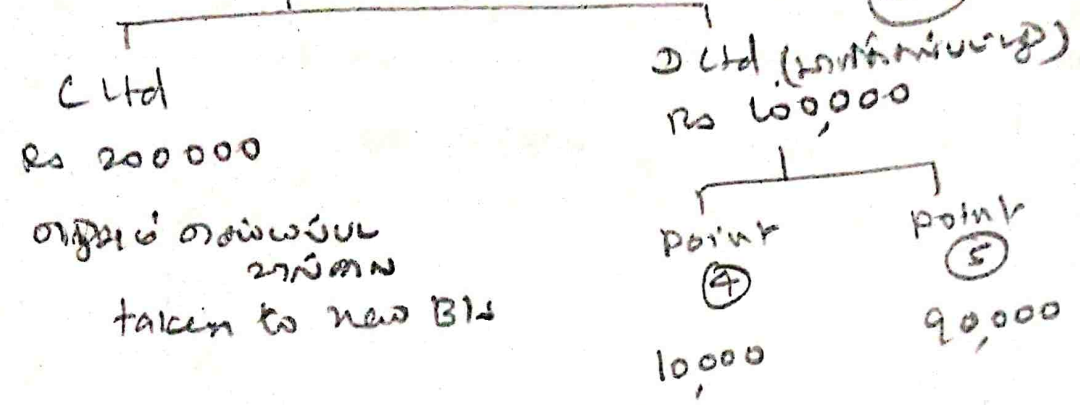 C Ltd
Rs 200000
எதுவும் செய்யப்பட
வில்லை
taken to new B/s
D Ltd
Rs 100,000
point
④
10,000
point
⑤
90,000